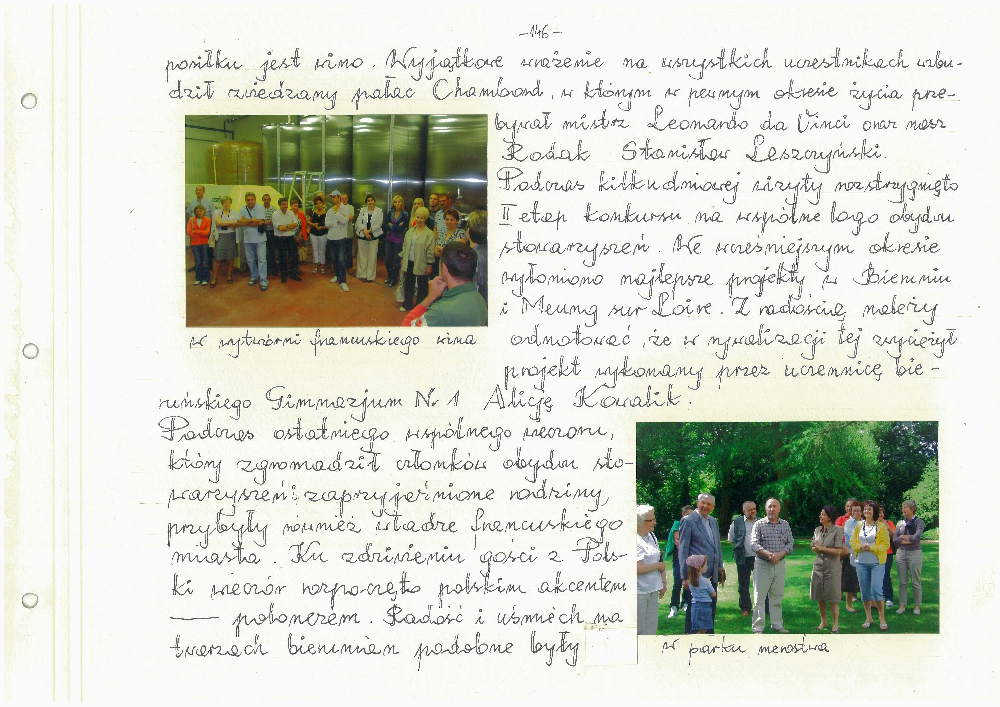 -146-
posiłku jest wino. Wyjątkowe wrażenie na wszystkich uczestnikach wzbu-
dził zwiedzany pałac Chambord, w którym w pewnym okresie życia prze-
bywał mistrz Leonardo da Vinci oraz nasz
Rodak Stanisław Leszczyński.
Podczas kilkudniowej wizyty rozstrzygnięto
II etap konkursu na wspólne logo obydwu
stowarzyszeń. We wcześniejszym okresie
wyłoniono najlepsze projekty w Bieruniu
i Meung sur Loire. Z radością należy
odnotować, że w rywalizacji tej zwyciężył
projekt wykonany przez uczennicę bie-
ruńskiego Gimnazjum Nr 1 Alicję Kowalik.
w wytwórni francuskiego wina
Podczas ostatniego wspólnego wieczoru,
który zgromadził członków obydwu sto-
warzyszeń i zaprzyjaźnione rodziny,
przybyły również władze francuskiego
miasta. Ku zdziwieniu gości z Pols-
ki wieczór rozpoczęto polskim akcentem
— polonezem. Radość i uśmiech na
twarzach bierunian podobne były
w parku merostwa